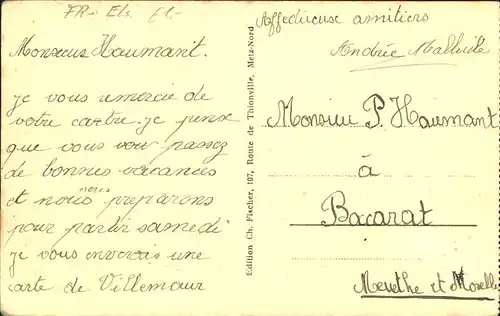 FR- Els. £1.-
Monsieur Haumant.
je vous remercie de
votre cartre. je pense
que vous vour passez
de bonnes vacances
et nous nous préparons
pour partir samedi
je vous enverais une
carte de Villemaur
Edition Ch. Fischer, 107, Route de Thionville, Metz-Nord
Affectueuse amitiers
Andrée
Monsieur P. Haumant
à
Bacarat
Meurthe et Moselle